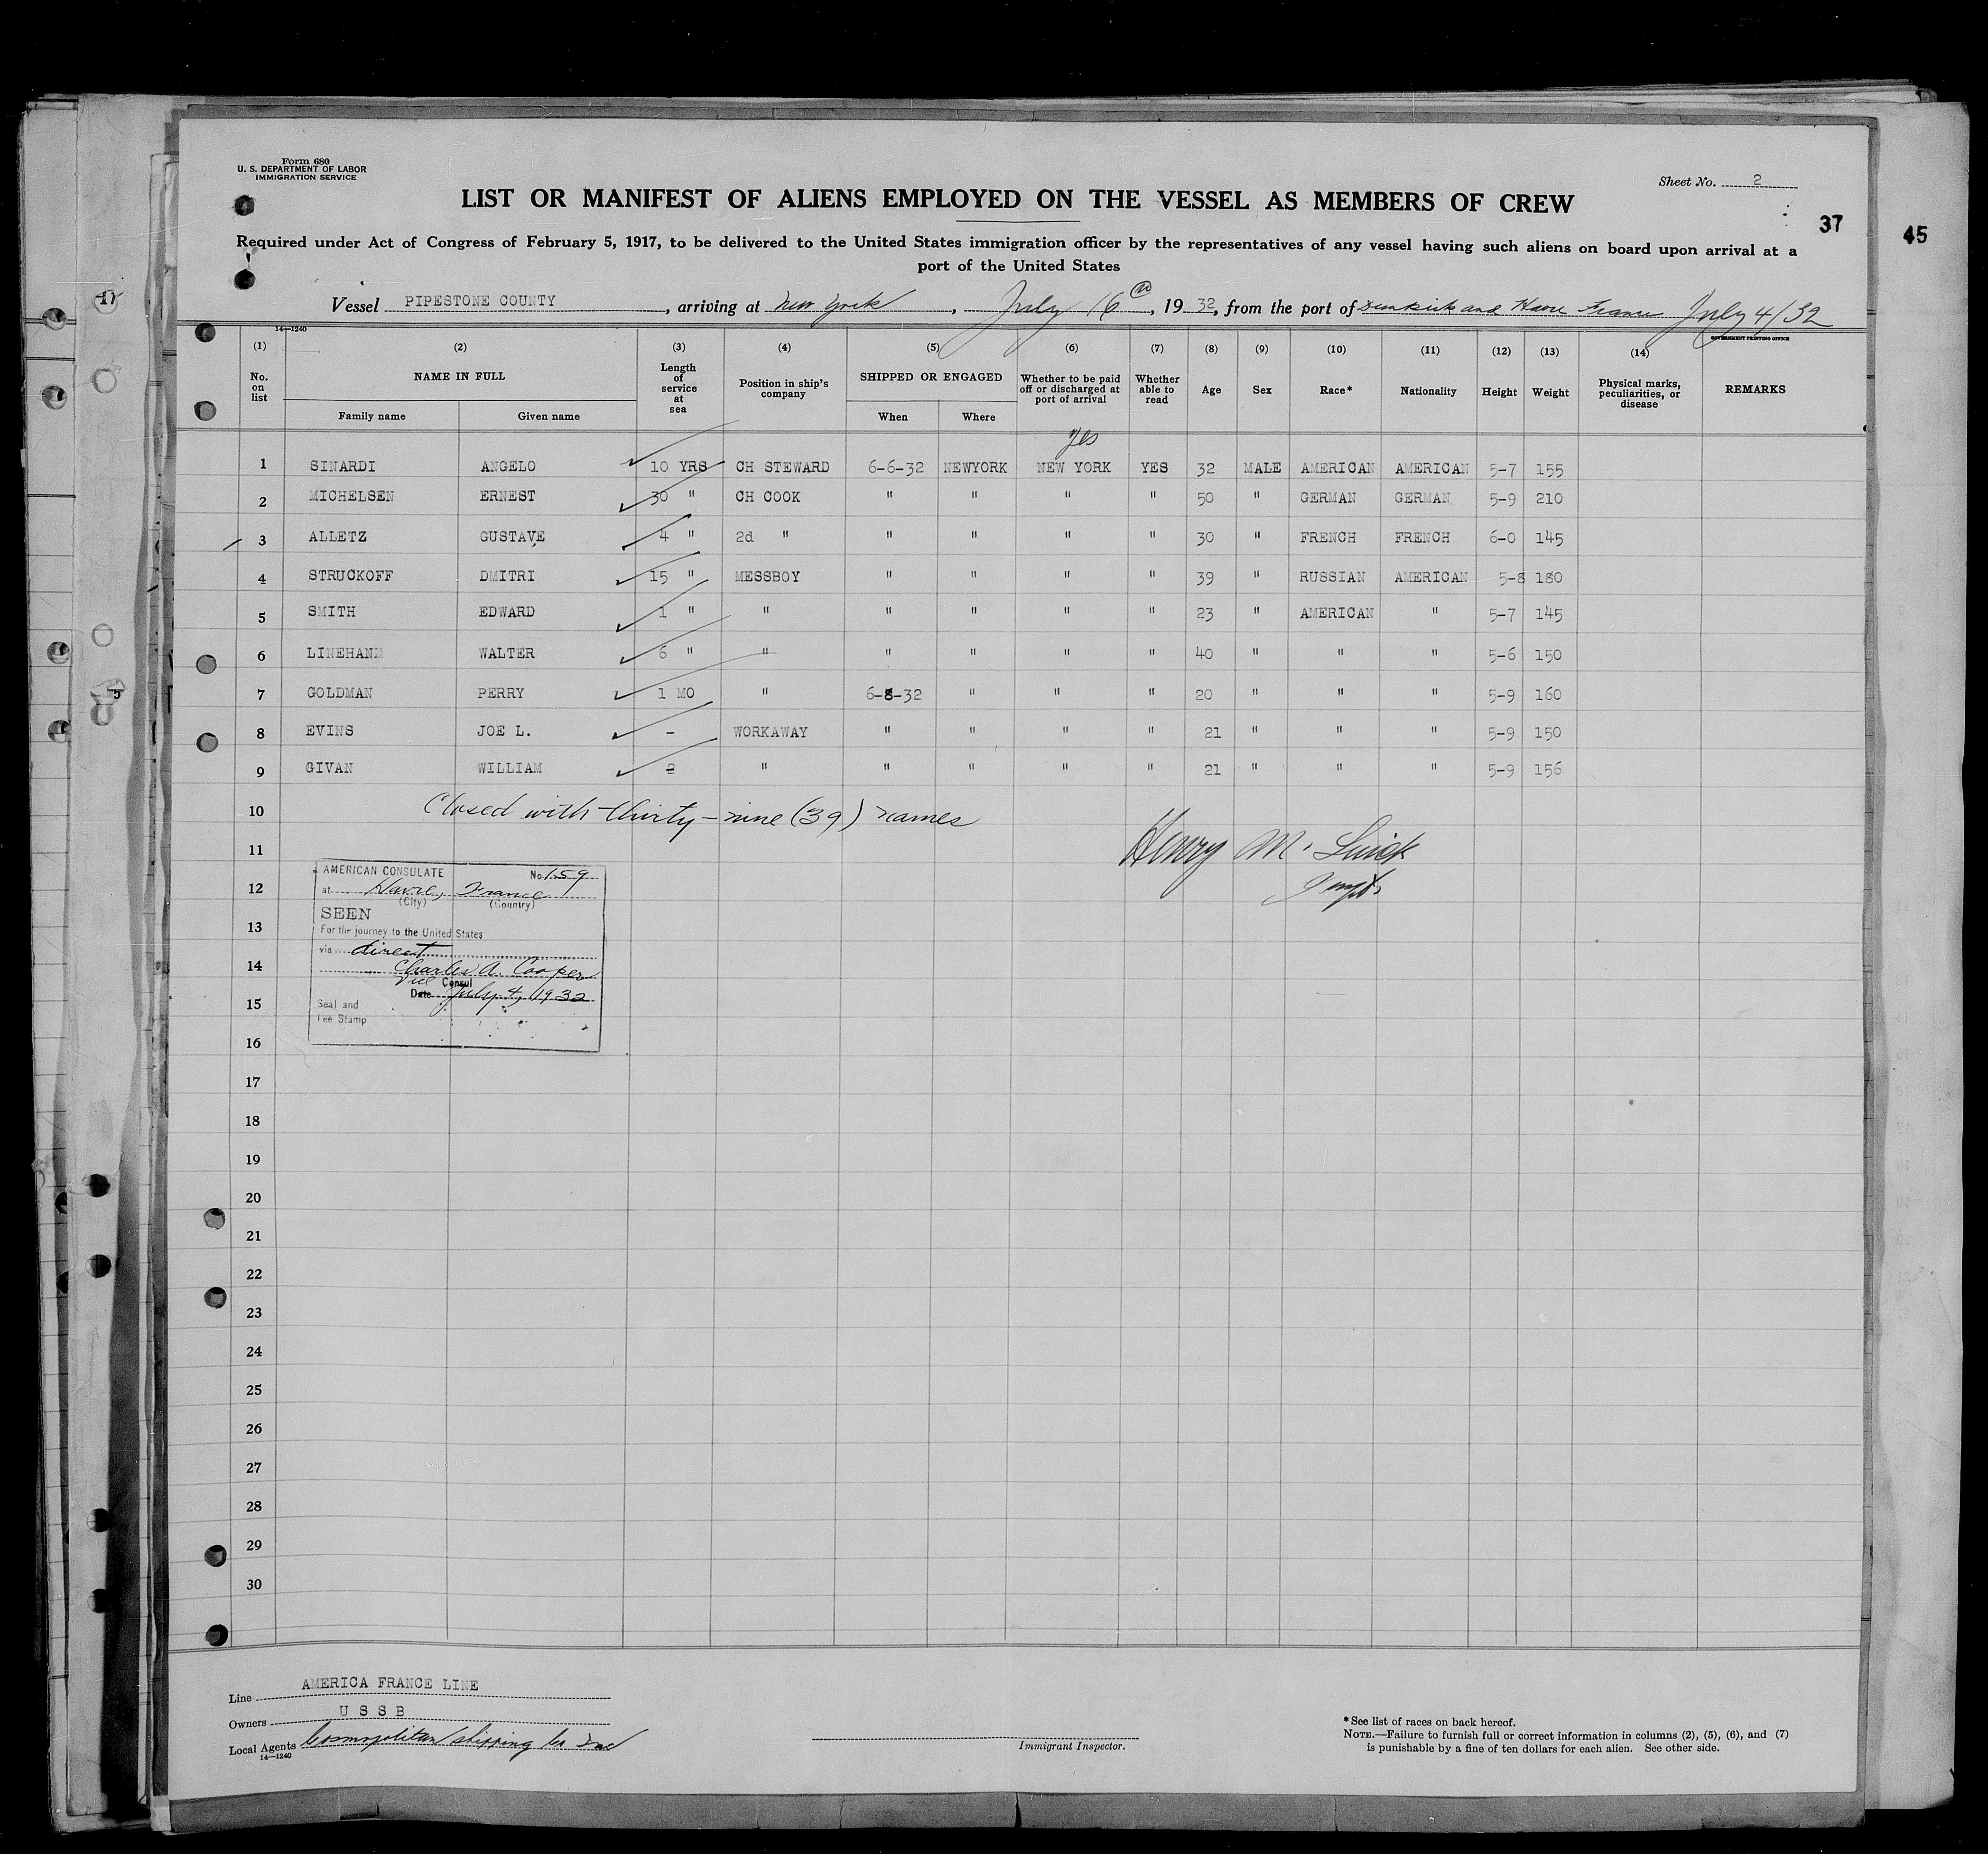 Form 680
U. S. DEPARTMENT OF LABOR
IMMIGRATION SERVICE
Sheet No. 2
LIST OR MANIFEST OF ALIENS EMPLOYED ON THE VESSEL AS MEMBERS OF CREW
37
45
Required under Act of Congress of February 5, 1917, to be delivered to the United States immigration officer by the representatives of any vessel having such aliens on board upon arrival at a
port of the United States
Vessel PIPESTONE COUNTY, arriving at New York, July 16, 1932, from the port of Dunkirk and Havre France July 4/32
14—1240
GOVERNMENT PRINTING OFFICE
(1) (2) (3) (4) (5) (6) (7) (8) (9) (10) (11) (12) (13) (14)
No. on list NAME IN FULL Length of service at sea Position in ship's company SHIPPED OR ENGAGED Whether to be paid off or discharged at port of arrival Whether able to read Age Sex Race* Nationality Height Weight Physical marks, peculiarities, or disease REMARKS
Family name Given name When Where
yes
1 SINARDI ANGELO 10 YRS CH STEWARD 6-6-32 NEWYORK NEW YORK YES 32 MALE AMERICAN AMERICAN 5-7 155
2 MICHELSEN ERNEST 30 " CH COOK " " " " 50 " GERMAN GERMAN 5-9 210
3 ALLETZ GUSTAVE 4 " 2d " " " " " 30 " FRENCH FRENCH 6-0 145
4 STRUCKOFF DMITRI 15 " MESSBOY " " " " 39 " RUSSIAN AMERICAN 5-8 180
5 SMITH EDWARD 1 " " " " " " 23 " AMERICAN " 5-7 145
6 LINEHAN WALTER 6 " " " " " " 40 " " " 5-6 150
7 GOLDMAN PERRY 1 MO " 6-8-32 " " " 20 " " " 5-9 160
8 EVINS JOE L. - WORKAWAY " " " " 21 " " " 5-9 150
9 GIVAN WILLIAM " " " " " 21 " " " 5-9 156
10 Closed with thirty-nine (39) names
11 Henry M.
AMERICAN CONSULATE No. 159
12 at Havre, France
(City) (Country)
SEEN
13 For the journey to the United States
via direct
14 Charles A. Cooper
Vice Consul
Date July 4, 1932
15 Seal and
Fee Stamp
16
17
18
19
20
21
22
23
24
25
26
27
28
29
30
Line AMERICA FRANCE LINE
Owners U S S B
Local Agents Cosmopolitan Shipping Co Inc
14—1240
Immigrant Inspector.
*See list of races on back hereof.
NOTE.—Failure to furnish full or correct information in columns (2), (5), (6), and (7)
is punishable by a fine of ten dollars for each alien. See other side.